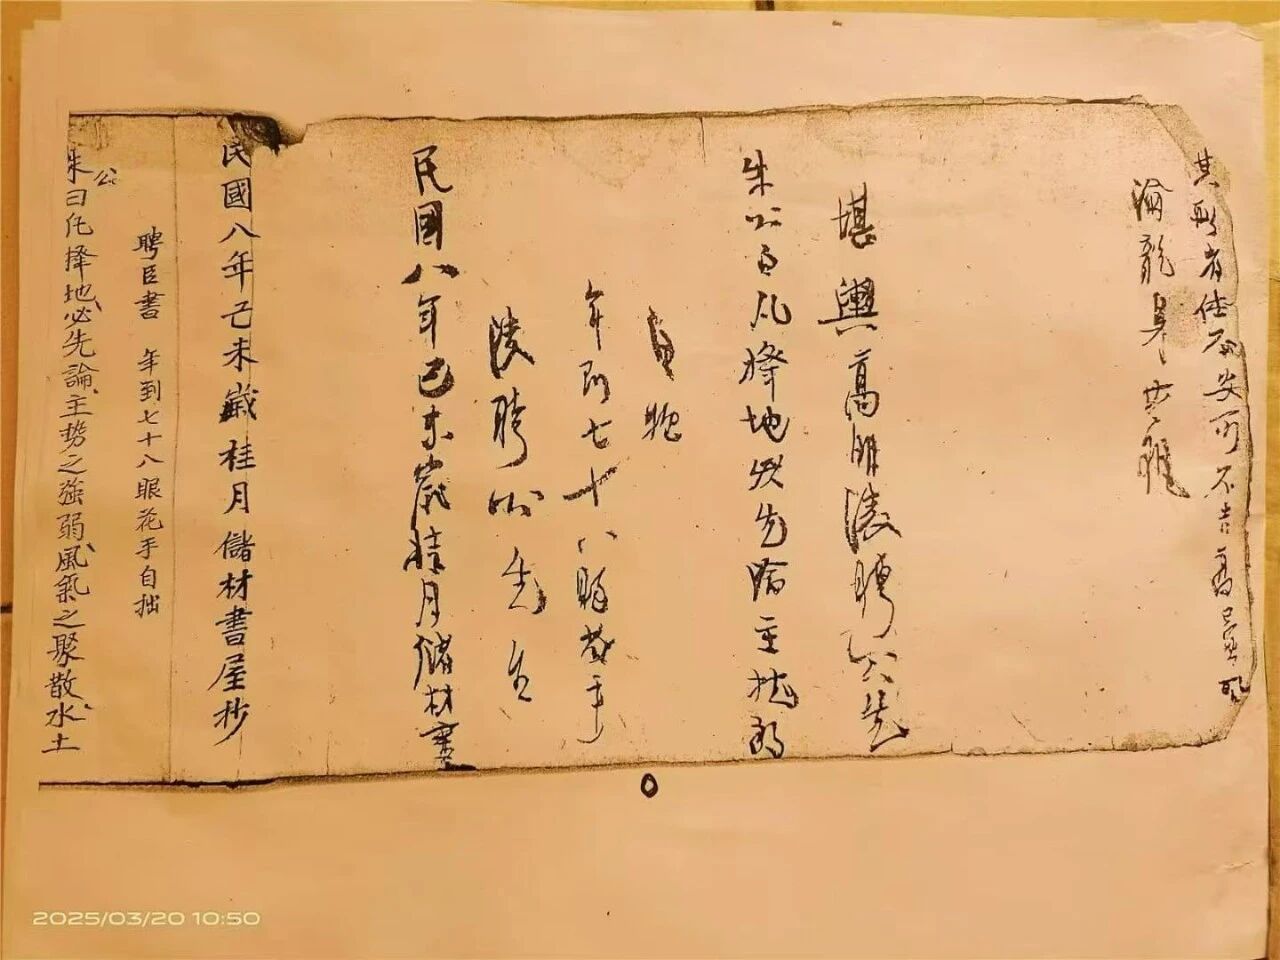 其形者使不安可不吉
堪輿高明凌聘公先
朱公曰凡擇地必先論主勢
自拙
年到七十八眼花手
凌聘公先生
民國八年己未歲桂月儲材書
民國八年己未歲桂月儲材書屋抄
聘臣書 年到七十八眼花手自拙
朱公曰凡擇地必先論主勢之強弱風氣之聚散水土
2025/03/20 10:50